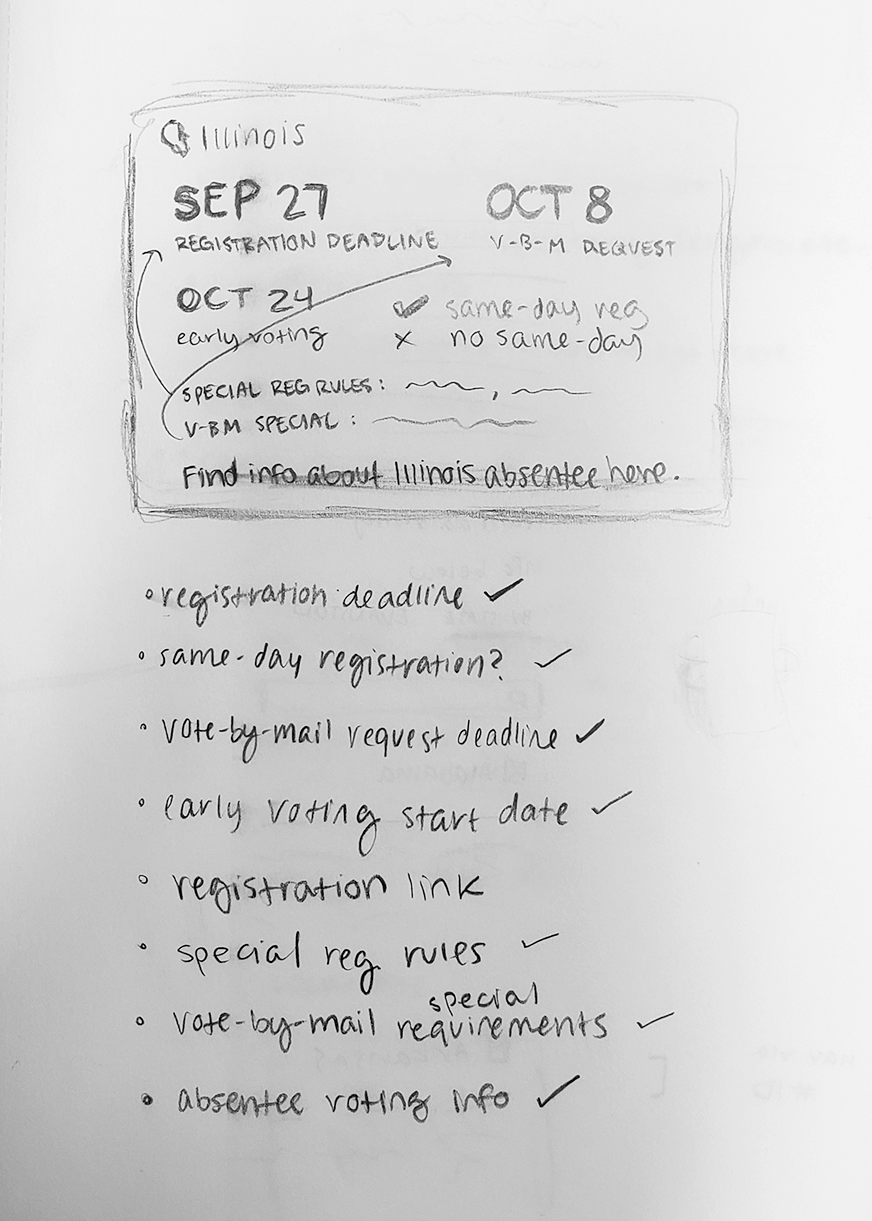 Illinois
SEP 27 OCT 8
REGISTRATION DEADLINE V-B-M REQUEST
OCT 24 ✓ same-day reg
early voting x no same-day
SPECIAL REG RULES: ,
V-BM SPECIAL:
Find info about Illinois absentee here.
• registration deadline ✓
• same-day registration? ✓
• vote-by-mail request deadline ✓
• early voting start date ✓
• registration link
• special reg rules ✓
special
• vote-by-mail requirements ✓
• absentee voting info ✓